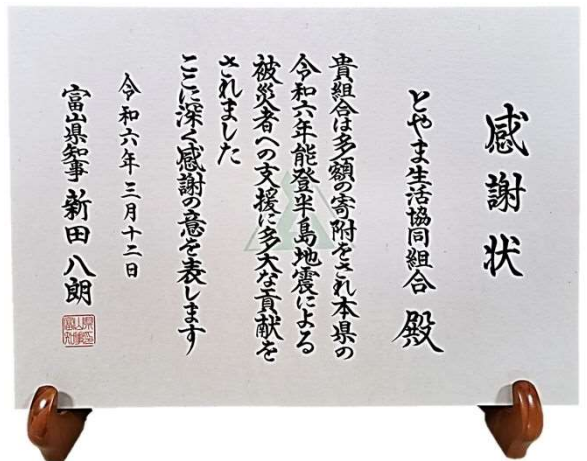 感謝状
とやま生活協同組合 殿
貴組合は多額の寄附をされ本県の
令和六年能登半島地震による
被災者への支援に多大な貢献を
されました
ここに深く感謝の意を表します
令和六年三月十二日
富山県知事 新田八朗
富山県知事印